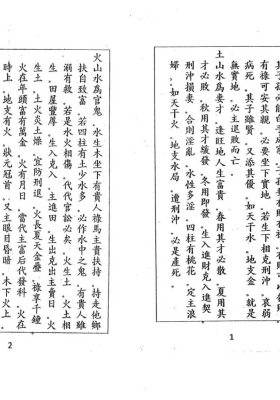 有祿可安其親。必要坐下實地。若生下相克刑沖。衰弱
病死。其子雖賢。又添其優。如天干水。地支金。就是
無實地。必主退敗而亡。
土山水爲妻才。逢旺地人生富貴。春用其才必散。夏用其
才必敗。秋用其才緩發。冬用即發。生入進財克入進契
刑沖損妻。合則淫亂。水性多淫。四柱有桃花。定主浪
婦。如天干火。地支水局。遭刑沖。必是產死。
1
火山水爲官鬼。水生木坐下有貴人祿馬主貴扶持。持走他鄉
扶自致富。若四柱有土少水多。必作水中之鬼。有貴人雖
溺有救。若是水火相傷。代代官訟必矣。火生土。火土相
生。田屋豐厚。生入克入。主進田。生出克出主賣日。火
生土。土火炎土燥。宜防刑退。火長夏天金疊疊。祿享千鍾
火在年頭富有萬金。火有月日。當代主富后代發科。火在
時上。地支有火。狀元冠首。又主眼目昏暗。木下火上。
2